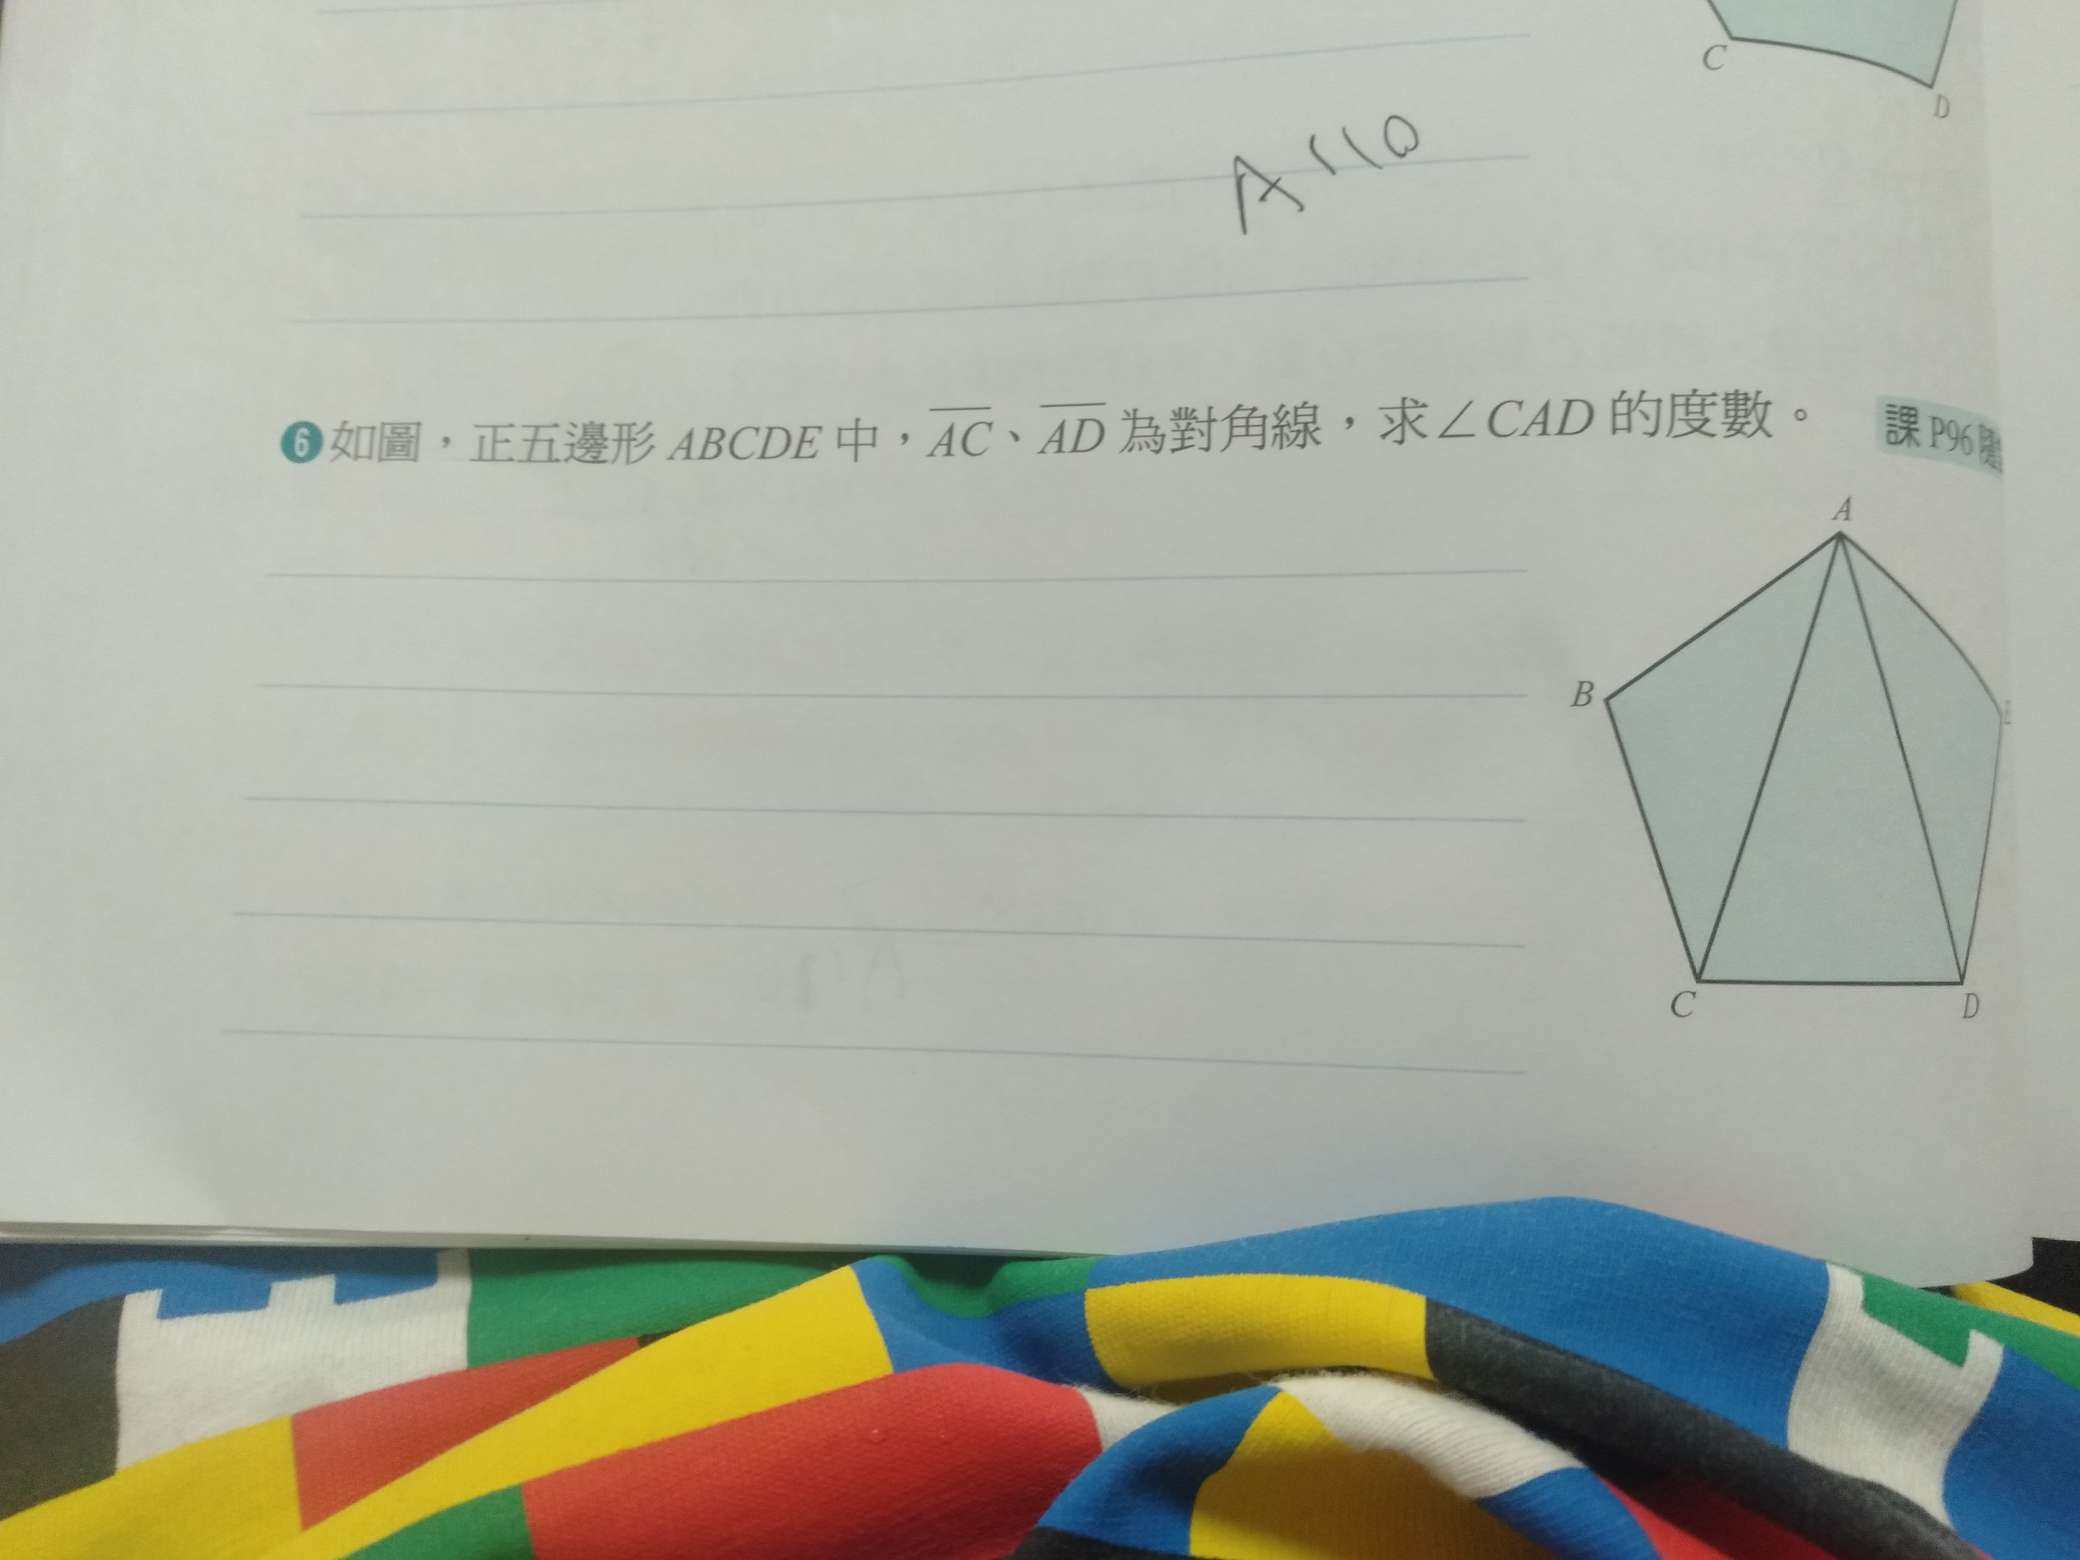 C
D
A 110
6 如圖，正五邊形 ABCDE 中，AC、AD 為對角線，求∠CAD 的度數。
課 P96 隨
A
B
E
C
D